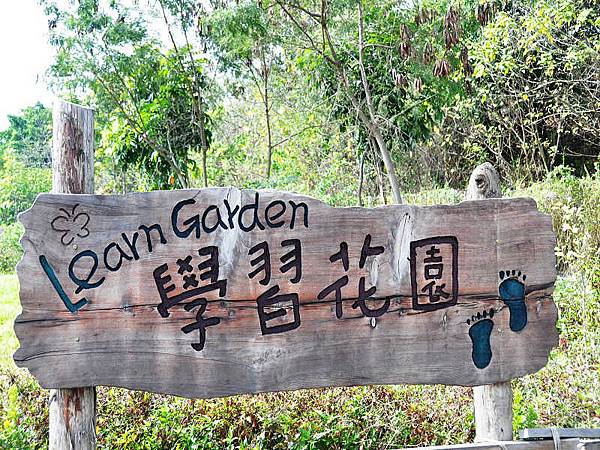 Learn Garden
學習花園